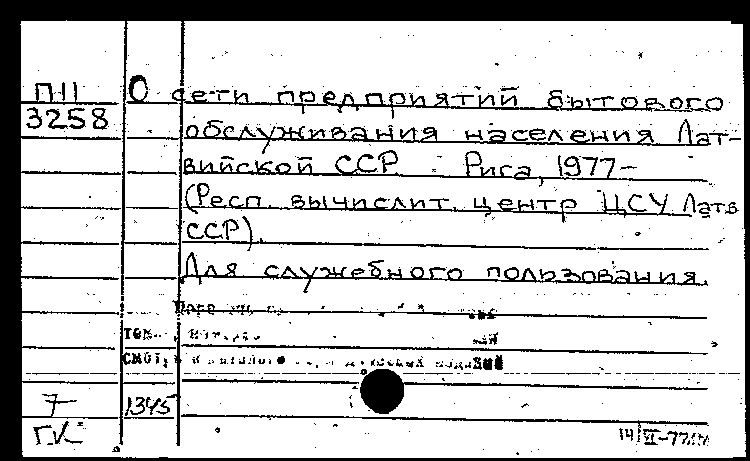 П-11
3258
О сети предприятий бытового
обслуживания населения Лат-
вийской ССР. Рига, 1977-
(Респ. вычислит. центр ЦСУ Латв.
ССР).
Для служебного пользования.
7
1345
ГК
14/VI-77